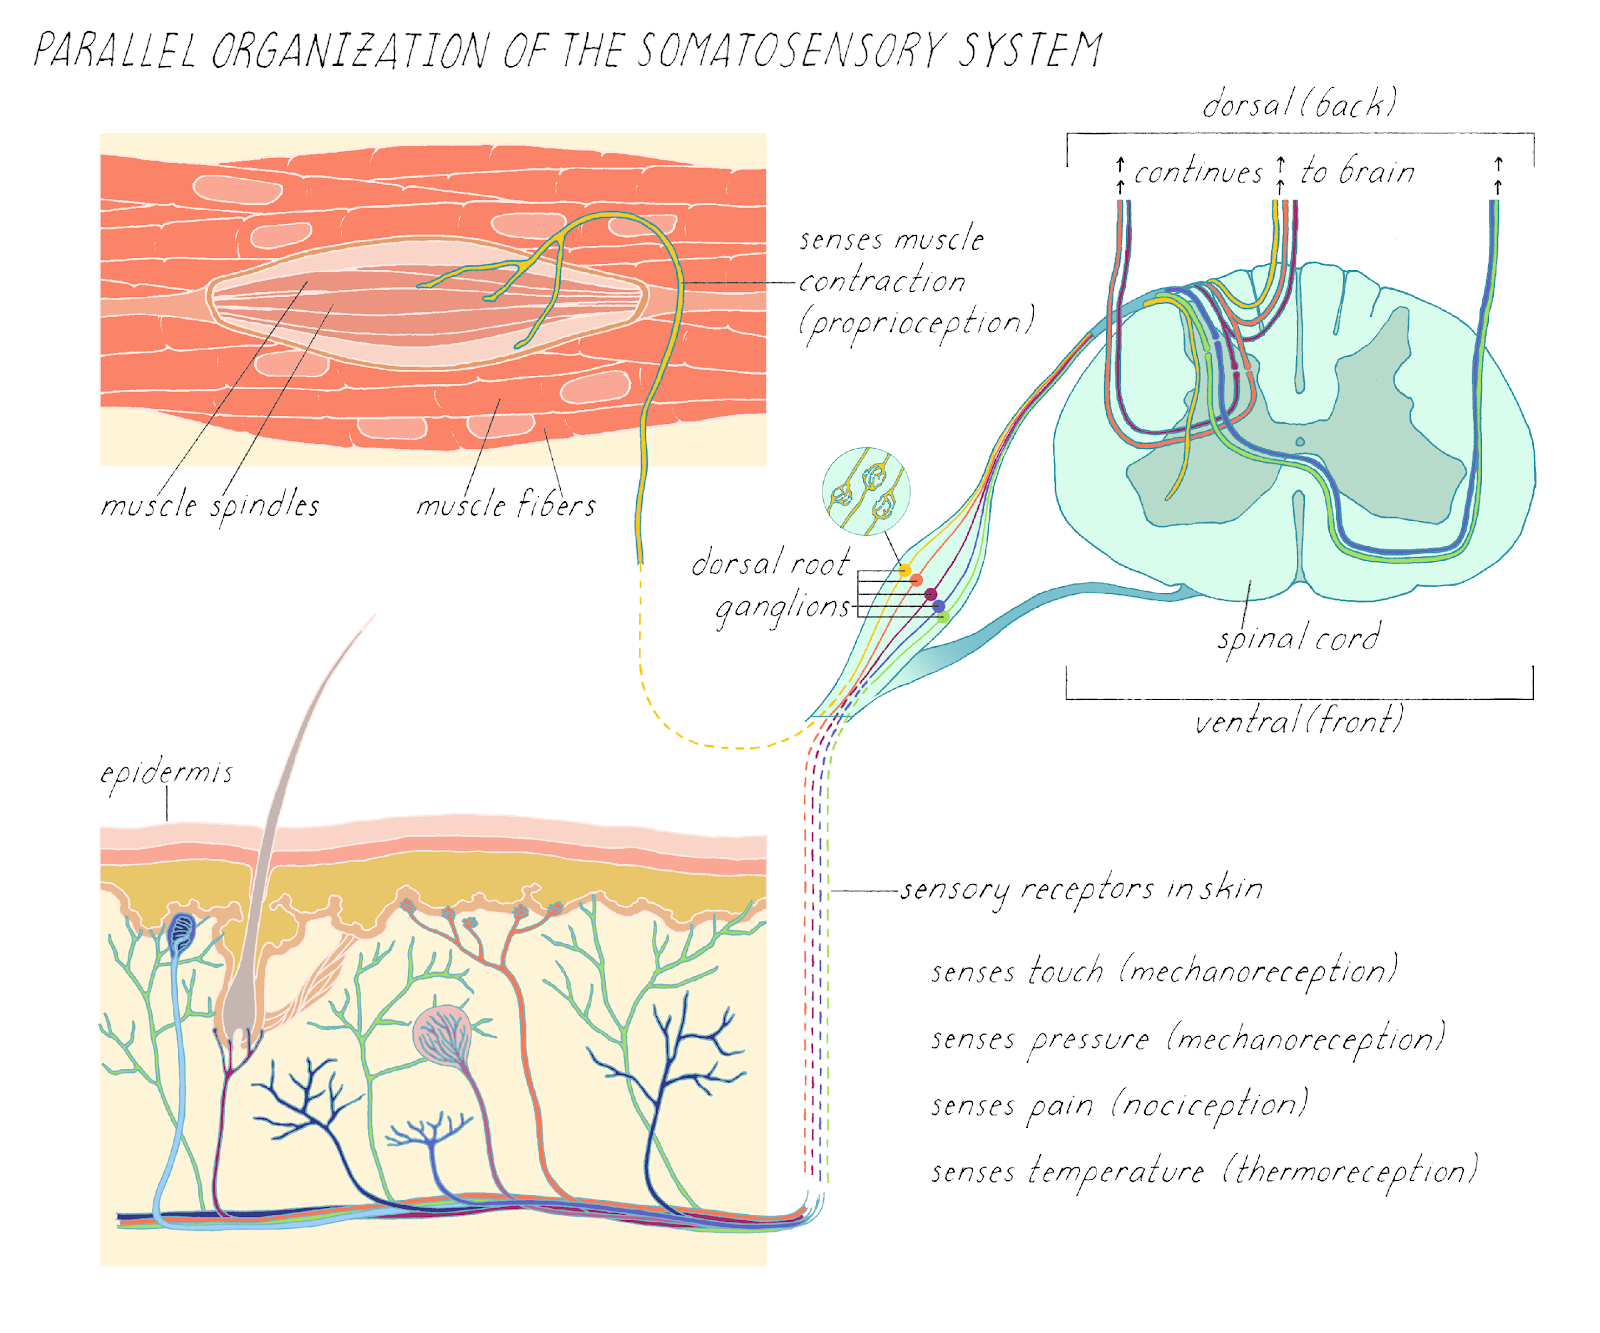 PARALLEL ORGANIZATION OF THE SOMATOSENSORY SYSTEM
dorsal (back)
continues to brain
senses muscle
contraction
(proprioception)
muscle spindles
muscle fibers
dorsal root
ganglions
spinal cord
ventral (front)
epidermis
sensory receptors in skin
senses touch (mechanoreception)
senses pressure (mechanoreception)
senses pain (nociception)
senses temperature (thermoreception)